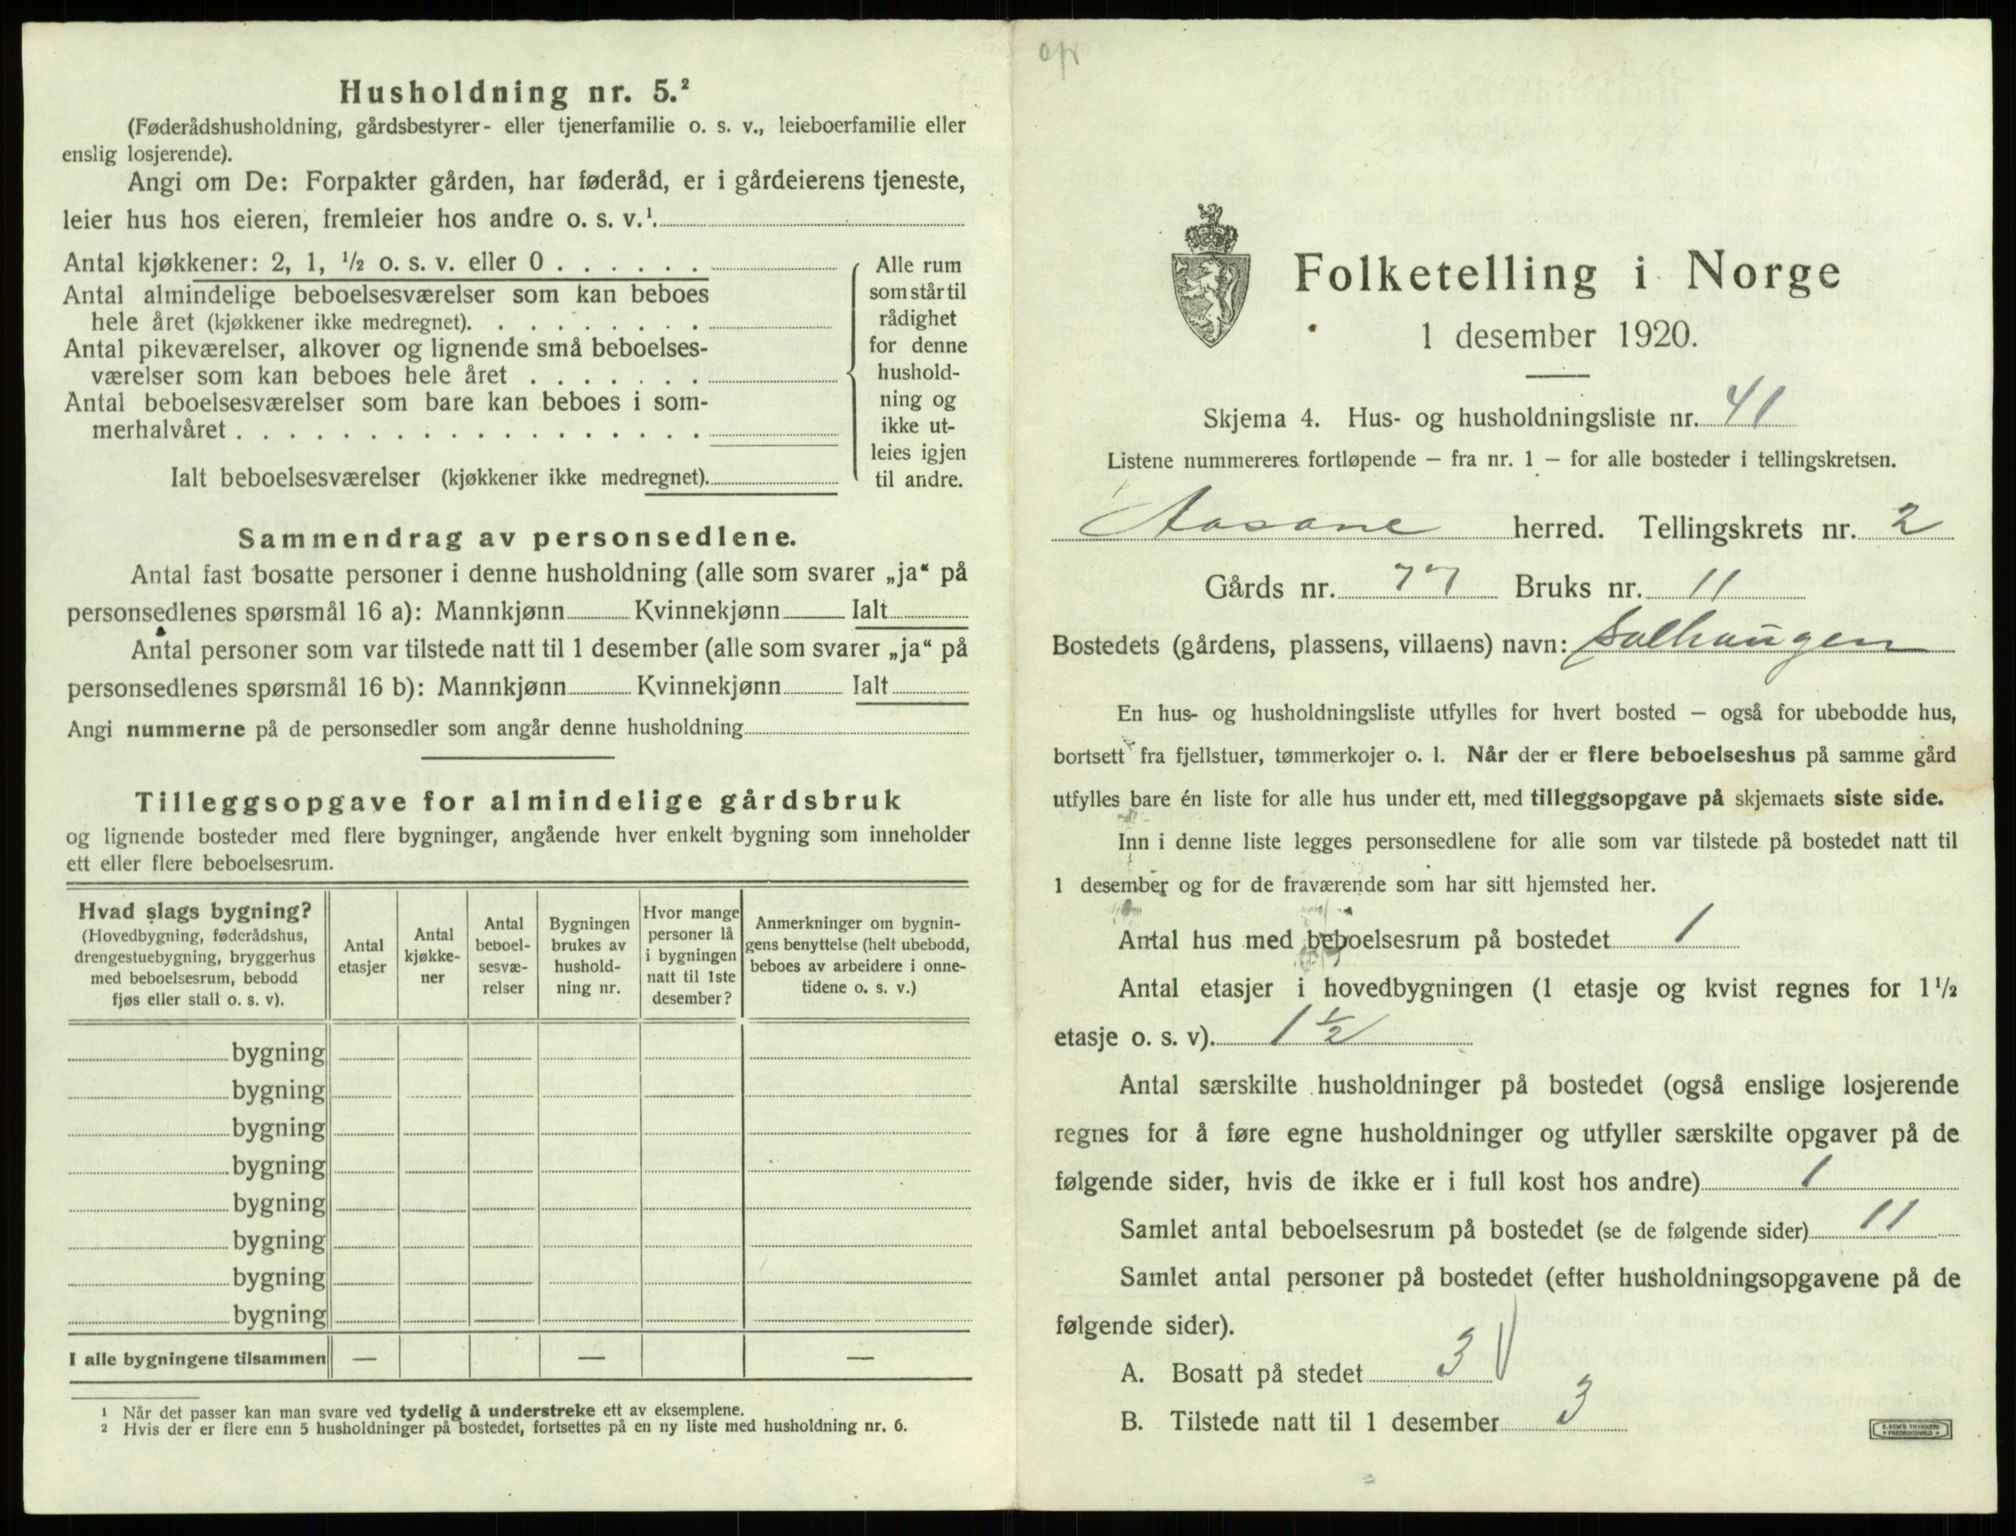 Husholdning nr. 5.²
(Føderådshusholdning, gårdsbestyrer- eller tjenerfamilie o. s. v., leieboerfamilie eller
enslig losjerende).
Angi om De: Forpakter gården, har føderåd, er i gårdeierens tjeneste,
leier hus hos eieren, fremleier hos andre o. s. v.¹
Antal kjøkkener: 2, 1, ½ o. s. v. eller 0 . . . . . .
Antal almindelige beboelsesværelser som kan beboes
hele året (kjøkkener ikke medregnet). . . . . . . . .
Antal pikeværelser, alkover og lignende små beboelses-
værelser som kan beboes hele året . . . . . . .
Antal beboelsesværelser som bare kan beboes i som-
merhalvåret . . . . . . . . . . . . . . . . . .
Ialt beboelsesværelser (kjøkkener ikke medregnet).
Alle rum
som står til
rådighet
for denne
hushold-
ning og
ikke ut-
leies igjen
til andre.
Sammendrag av personsedlene.
Antal fast bosatte personer i denne husholdning (alle som svarer „ja“ på
personsedlenes spørsmål 16 a): Mannkjønn Kvinnekjønn Ialt
Antal personer som var tilstede natt til 1 desember (alle som svarer „ja“ på
personsedlenes spørsmål 16 b): Mannkjønn Kvinnekjønn Ialt
Angi nummerne på de personsedler som angår denne husholdning
Tilleggsopgave for almindelige gårdsbruk
og lignende bosteder med flere bygninger, angående hver enkelt bygning som inneholder
ett eller flere beboelsesrum.
Hvad slags bygning?
(Hovedbygning, føderådshus,
drengestuebygning, bryggerhus
med beboelsesrum, bebodd
fjøs eller stall o. s. v).
Antal
etasjer
Antal
kjøkke-
ner
Antal
beboel-
sesvæ-
relser
Bygningen
brukes av
hushold-
ning nr.
Hvor mange
personer lå
i bygningen
natt til 1ste
desember?
Anmerkninger om bygnin-
gens benyttelse (helt ubebodd,
beboes av arbeidere i onne-
tidene o. s. v.)
bygning
bygning
bygning
bygning
bygning
bygning
bygning
bygning
I alle bygningene tilsammen — — —
¹ Når det passer kan man svare ved tydelig å understreke ett av eksemplene.
² Hvis der er flere enn 5 husholdninger på bostedet, fortsettes på en ny liste med husholdning nr. 6.
Folketelling i Norge
1 desember 1920.
Skjema 4. Hus- og husholdningsliste nr. 41
Listene nummereres fortløpende – fra nr. 1 – for alle bosteder i tellingskretsen.
Aasane herred. Tellingskrets nr. 2
Gårds nr. 77 Bruks nr. 11
Bostedets (gårdens, plassens, villaens) navn: Solhaugen
En hus- og husholdningsliste utfylles for hvert bosted – også for ubebodde hus,
bortsett fra fjellstuer, tømmerkojer o. l. Når der er flere beboelseshus på samme gård
utfylles bare én liste for alle hus under ett, med tilleggsopgave på skjemaets siste side.
Inn i denne liste legges personsedlene for alle som var tilstede på bostedet natt til
1 desember og for de fraværende som har sitt hjemsted her.
Antal hus med beboelsesrum på bostedet 1
Antal etasjer i hovedbygningen (1 etasje og kvist regnes for 1½
etasje o. s. v). 1½
Antal særskilte husholdninger på bostedet (også enslige losjerende
regnes for å føre egne husholdninger og utfyller særskilte opgaver på de
følgende sider, hvis de ikke er i full kost hos andre) 1
Samlet antal beboelsesrum på bostedet (se de følgende sider) 11
Samlet antal personer på bostedet (efter husholdningsopgavene på de
følgende sider).
A. Bosatt på stedet 3
B. Tilstede natt til 1 desember 3